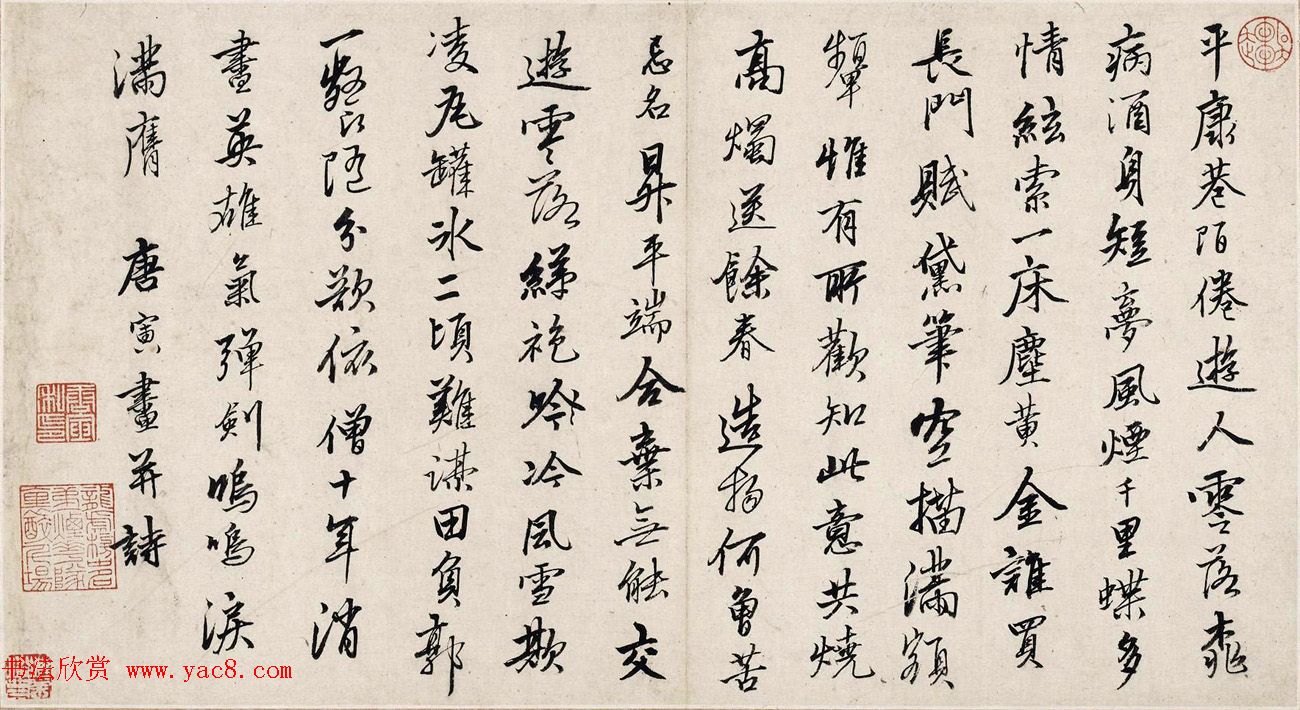 平康巷陌倦遊人零落桃
病酒身短夢風煙千里蝶多
情絃索一床塵黃金誰買
長門賦黛筆空描滿額
顰惟有所歡知此意共燒
高燭送餘春 造物何曾苦
忌名昇平端合棄無能交
遊零落綈袍吟冷風雪欺
凌瓦罐冰二頃難謀田負郭
一餐隨分欲依僧十年消
盡英雄氣彈劍嗚嗚淚
滿膺 唐寅畫并詩
唐寅私印
书法欣赏 www.yac8.com